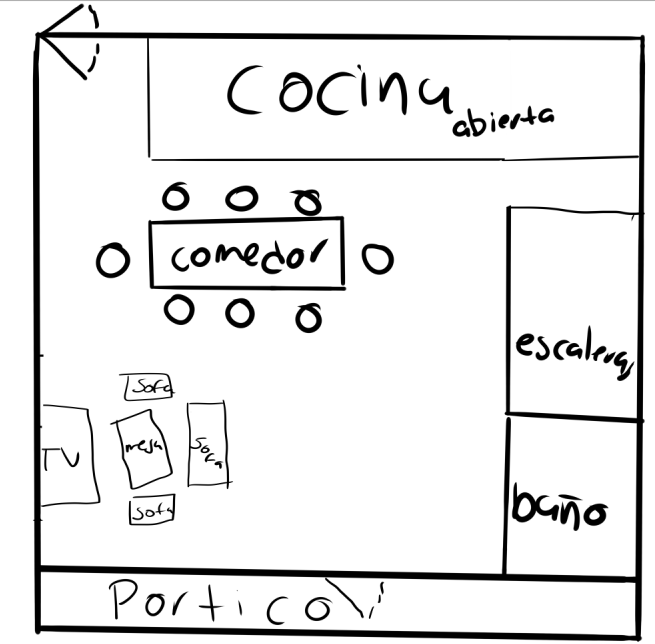 cocina
abierta
comedor
escaleras
sofa
TV
mesa
sofa
sofa
baño
Portico